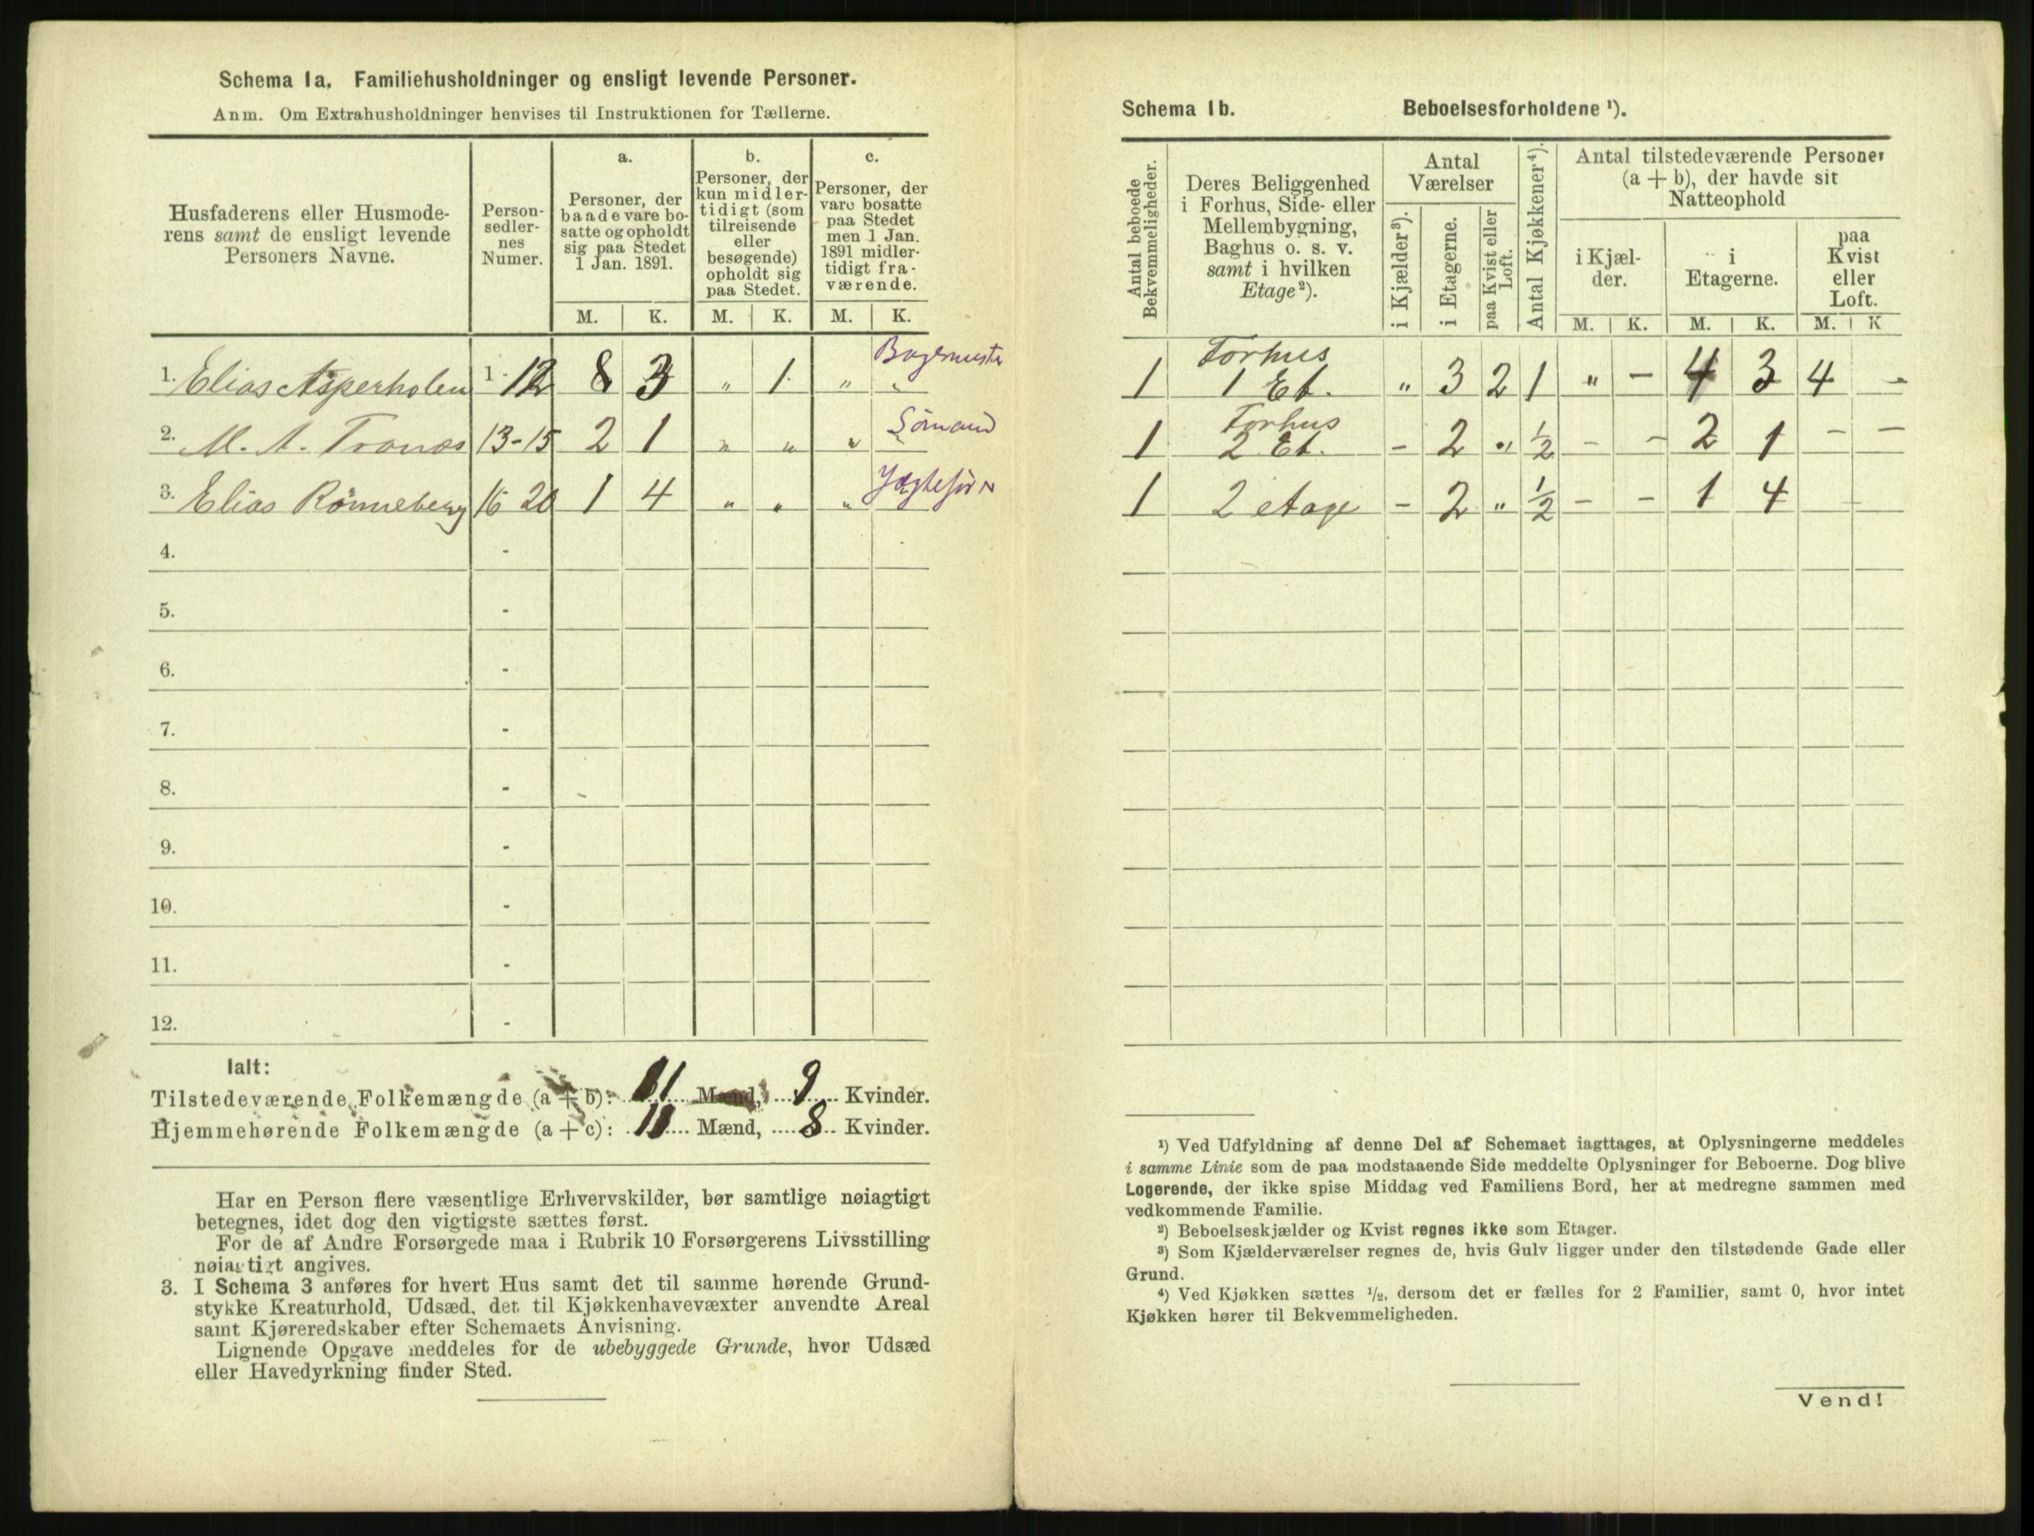 Schema 1a. Familiehusholdninger og ensligt levende Personer.
Anm. Om Extrahusholdninger henvises til Instruktionen for Tællerne.
Husfaderens eller Husmoderens samt de ensligt levende Personers Navne.
Personsedlernes Numer.
a.
Personer, der baade vare bosatte og opholdt sig paa Stedet 1 Jan. 1891.
b.
Personer, der kun midlertidigt (som tilreisende eller besøgende) opholdt sig paa Stedet.
c.
Personer, der vare bosatte paa Stedet men 1 Jan. 1891 midlertidigt fraværende.
M. K. M. K. M. K.
1. Elias Asperholen 1-12 8 3 " 1 " " Bagermester
2. M. A. Tranaas 13-15 2 1 " " " " Sømand
3. Elias Rønneberg 16 20 1 4 " " "
4. -
5. -
6. -
7. -
8. -
9. -
10. -
11. -
12. -
Ialt:
Tilstedeværende Folkemængde (a + b): 11 Mænd, 9 Kvinder.
Hjemmehørende Folkemængde (a + c): 11 Mænd, 8 Kvinder.
Har en Person flere væsentlige Erhvervskilder, bør samtlige nøiagtigt
betegnes, idet dog den vigtigste sættes først.
For de af Andre Forsørgede maa i Rubrik 10 Forsørgerens Livsstilling
nøiagtigt angives.
3. I Schema 3 anføres for hvert Hus samt det til samme hørende Grund-
stykke Kreaturhold, Udsæd, det til Kjøkkenhavevæxter anvendte Areal
samt Kjøreredskaber efter Schemaets Anvisning.
Lignende Opgave meddeles for de ubebyggede Grunde, hvor Udsæd
eller Havedyrkning finder Sted.
Schema 1b. Beboelsesforholdene ¹).
Antal beboede Bekvemmeligheder.
Deres Beliggenhed i Forhus, Side- eller Mellembygning, Baghus o. s. v. samt i hvilken Etage²).
Antal Værelser
i Kjælder³).
i Etagerne.
paa Kvist eller Loft.
Antal Kjøkkener⁴).
Antal tilstedeværende Personer (a + b), der havde sit Natteophold
i Kjælder.
i Etagerne.
paa Kvist eller Loft.
M. K. M. K. M. K
1 Forhus 1 Et. " 3 2 1 " - 4 3 4 -
1 Forhus 2 Et. - 2 " ½ - - 2 1 - -
1 2 etage - 2 " ½ - - 1 4
¹) Ved Udfyldning af denne Del af Schemaet iagttages, at Oplysningerne meddeles
i samme Linie som de paa modstaaende Side meddelte Oplysninger for Beboerne. Dog blive
Logerende, der ikke spise Middag ved Familiens Bord, her at medregne sammen med
vedkommende Familie.
²) Beboelseskjælder og Kvist regnes ikke som Etager.
³) Som Kjælderværelser regnes de, hvis Gulv ligger under den tilstødende Gade eller
Grund.
⁴) Ved Kjøkken sættes ½, dersom det er fælles for 2 Familier, samt 0, hvor intet
Kjøkken hører til Bekvemmeligheden.
Vend!